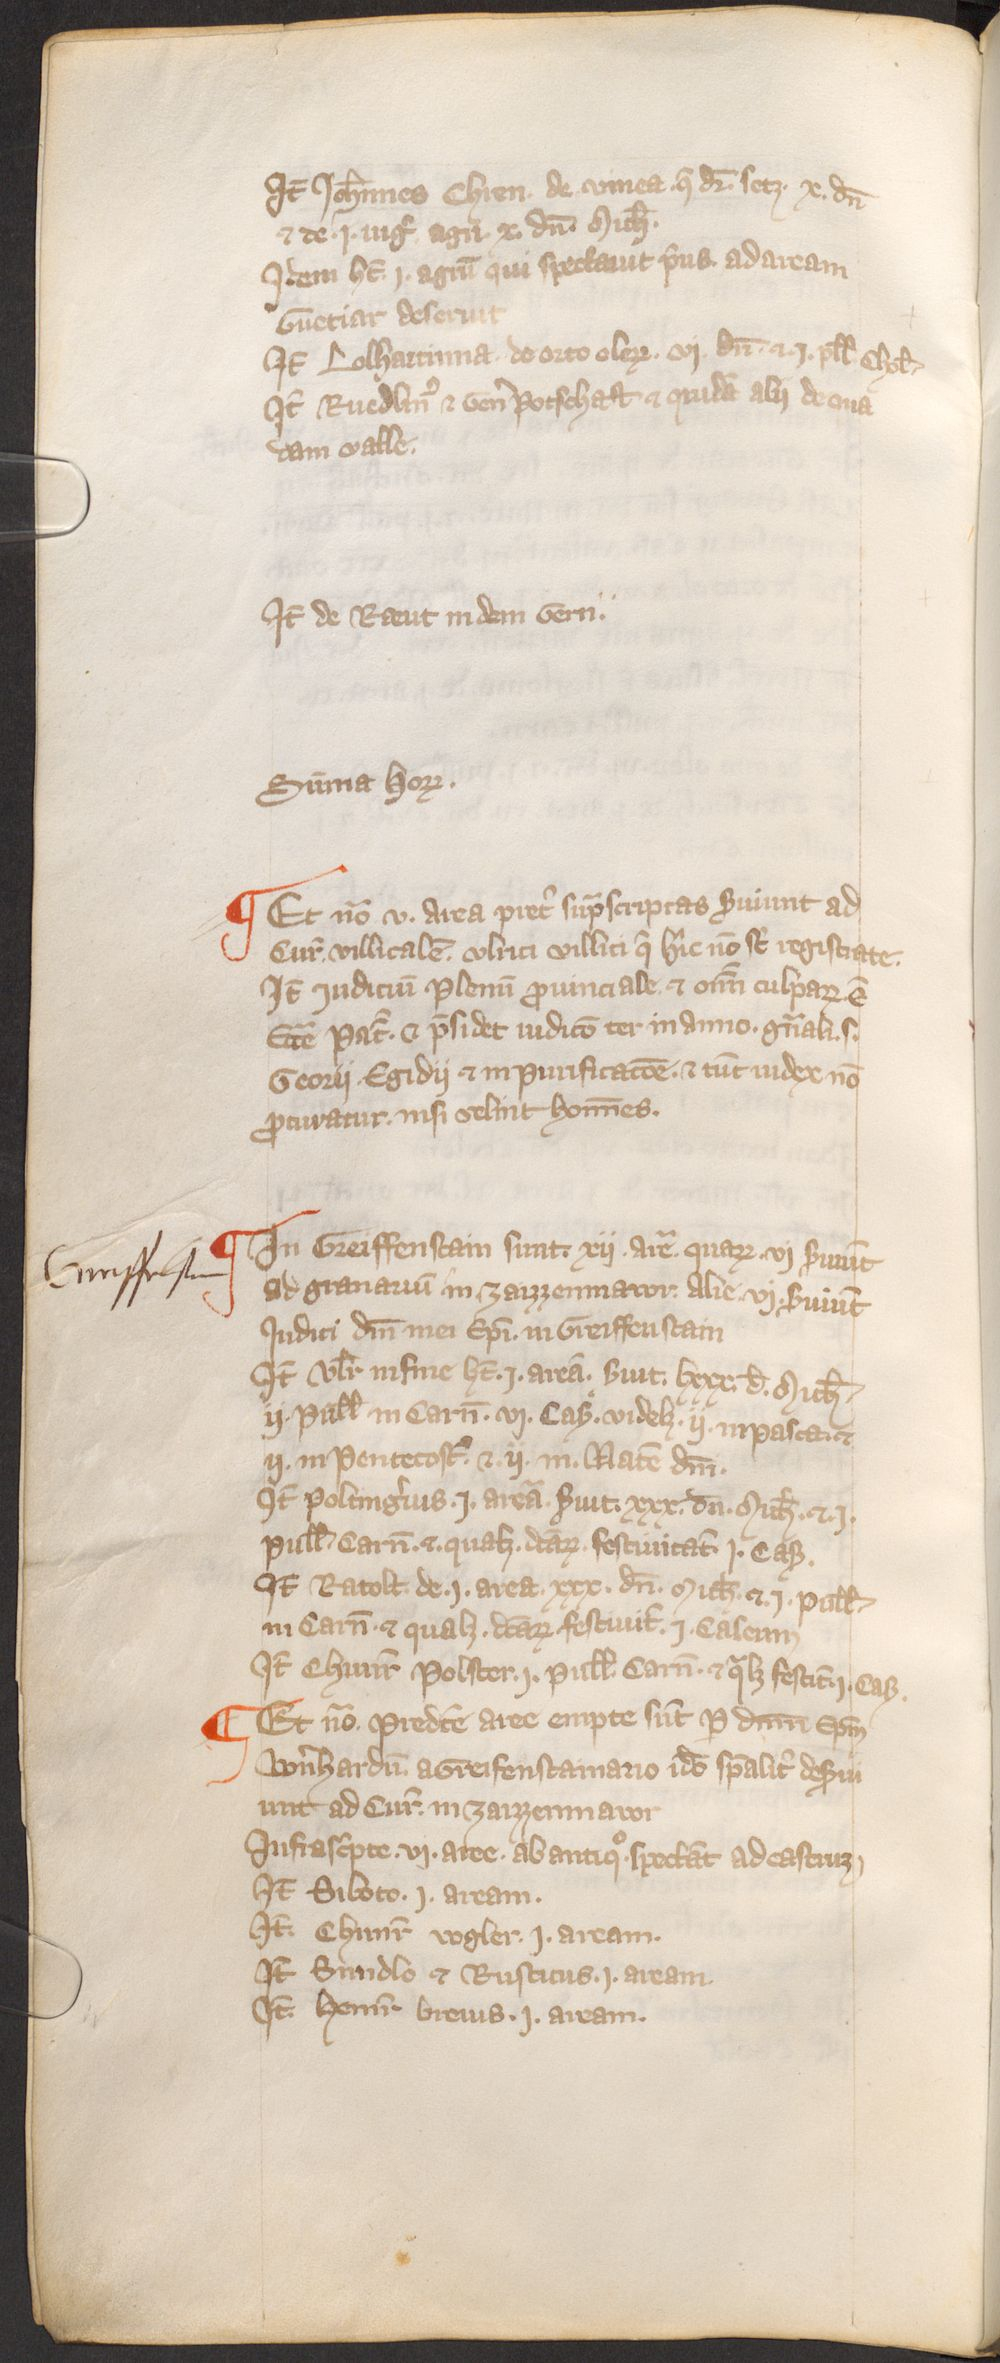 It̄ Joh̄nnes Chren. de vinea. q̄ dr̄. setz. x. dn̄
⁊ de .j. iug͛ agri. x. dn̄. Mich̄.
Idem ht̄. j. agrū qui spectauit p̄us. ad aream
deseruit
It̄ Lolhartinna. de orto oleꝝ. vj. dn̄. ⁊. j. pll̄
It̄ Ruedlin⁹ ⁊ Potschaft ⁊ quidā alij de
dam valle.
It̄ de Raeut in dem Gern.
Sūma hoꝝ.
Et nō. v. area pret͛ sup̄scriptas s̄uiunt ad
Cur̄. villicalē. vlrici villici q̄ hic nō st̄ registrate.
It̄ Iudiciū Plenū ꝓuinciale ⁊ om̄ culpaꝝ. ē
Eccē Pat̄. ⁊ p̄sidet iudico ter in anno. gn̄ali. s.
Georij Egidij ⁊ in purificatōe. ⁊ tūc iudex nō
ꝓcuratur. nisi velint homīes.
Greiffenstain
In Greiffenstain sunt. xij. are͛. quaꝝ. vj s̄uiūt
ad granariū in zaizzenmawr. Alie. vj. s̄uiūt
Iudici dn̄i mei Ep̄i. in Greiffenstain
It̄ Vlr̄ in fine ht̄. j. areā. s̄uit. lxxx. d̄. Mich̄.
ij. Pull̄ in Carn̄. vj. Cas͛. videlꝫ. ij. in pasca. ⁊
ij. in Pentecost̄. ⁊. ij. in. Natē dn̄i.
It̄ Poltingerius. j. areā. s̄uit. xxx. dn̄. Mich̄. ⁊. j.
pull̄. Carn̄. ⁊. qualꝫ. dc̄aꝝ. festiuitat̄. j. Cas͛.
It̄ Ratolt. de. j. area. xxx. dn̄. Mich̄. ⁊. j. pull̄.
in Carn̄. ⁊ qualꝫ. dc̄aꝝ festiuit̄. j. Caseum
It̄ Chunr̄ Polster. j. pull̄ Carn̄. ⁊ q̄lꝫ festiē. j. Cas͛.
Et nō. Predc̄e aree empte sūt ꝑ dnm̄ Ep̄m
Wernhardū. a Greifenstainario idō sp̄alit͛ des̄ui
unt ad Cur̄. in zaizzenmawr
Infrasc͛pte. vj. aree. ab antiq⁰. spectāt ad castruꝫ
It̄ Siboto. j. aream.
It̄. Chunr̄ vogler. j. aream.
It̄ Sundlo ⁊ Rusticus. j. aream.
It̄. Heinr̄ breuis. j. aream.